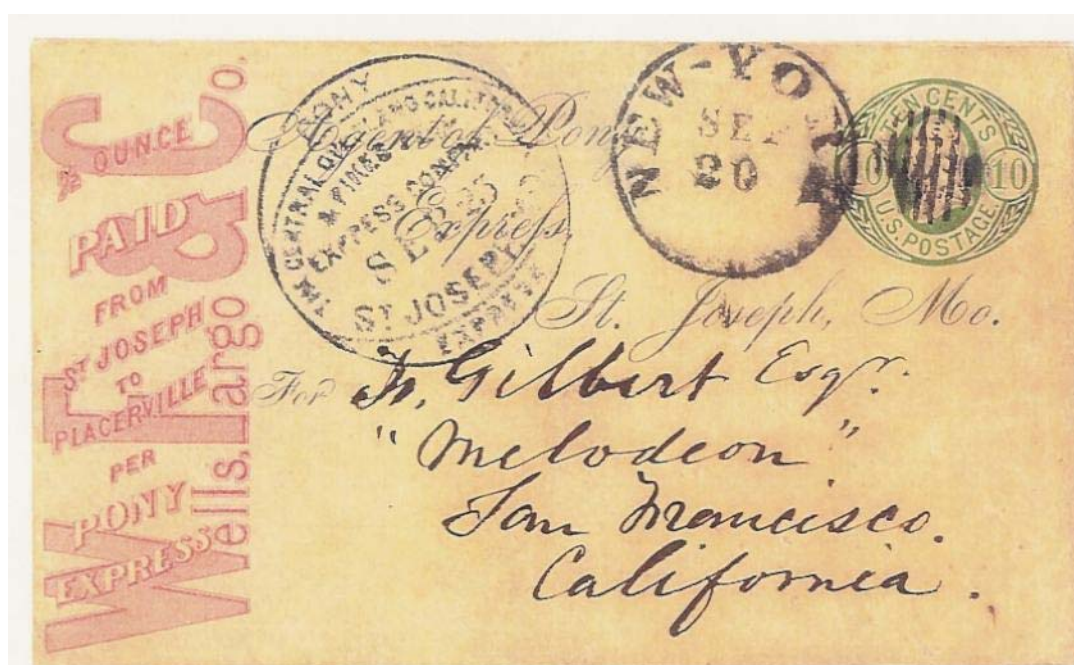 ½ OUNCE
PAID
FROM
ST JOSEPH
TO
PLACERVILLE
PER
PONY
EXPRESS
W. F. & Co.
Wells, Fargo
PONY
THE CENTRAL OVERLAND CALIFORNIA
& PIKES PEAK
EXPRESS COMPANY
SEP
ST JOSEPH
EXPRESS
NEW-YORK
SEP
20
TEN CENTS
10 10
U.S. POSTAGE
Agent of Pony
Express,
St. Joseph, Mo.
For
Gilbert Esqr.
"Melodeon"
San Francisco.
California.